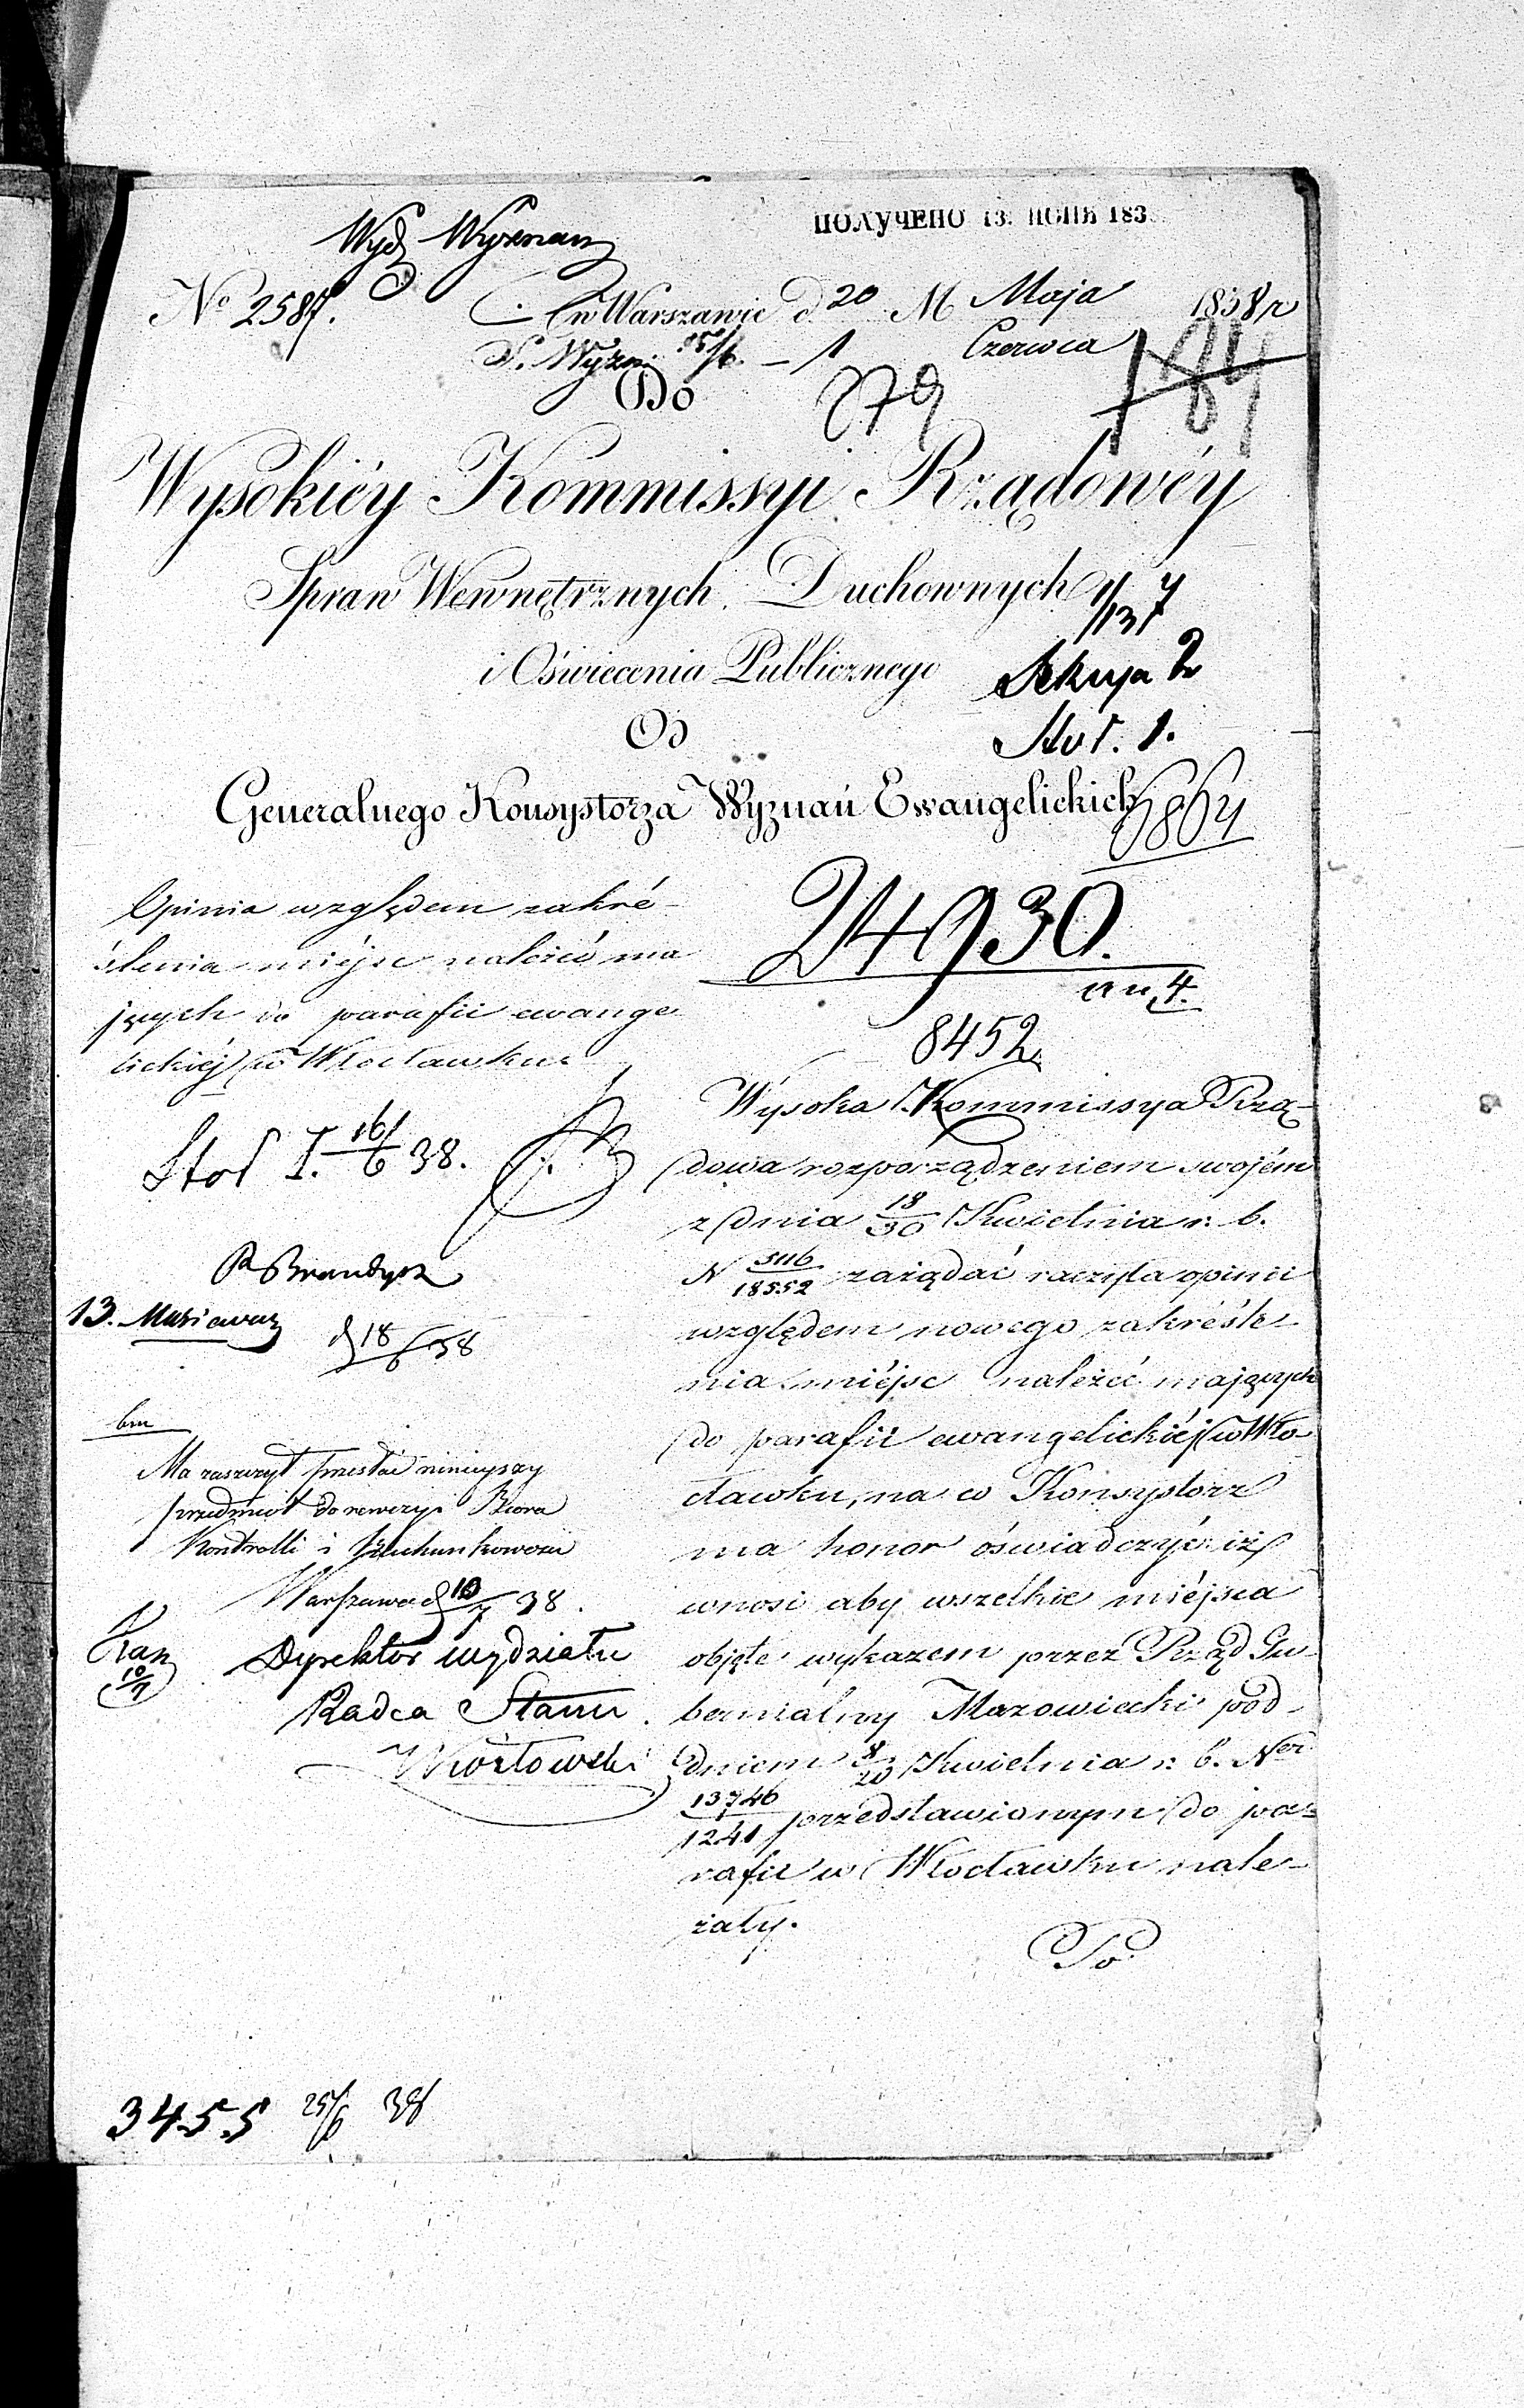 ПОЛУЧЕНО 13. ІЮНЯ 183
Wydz. Wyznań
No 2587.
w Warszawie d. 20 M Maja 1838 r
15/6. – 1 Czerwca
Do
279
184
Wysokiéy Kommissyi Rządowéy
Spraw Wewnętrznych, Duchownych
i Oświecenia Publicznego
Sekcya 2
Stoł. 1.
Od
Generalnego Konsystorza Wyznań Ewangelickich
24930.
8452
Opinia względem zakré-
ślenia miéjsc należeć ma
jących do parafii ewange
lickiéj w Włocławku
Stoł I. 16/6 38.
d 18/6 38
Ma zaszczyt przesłać niniejszy
przedmiot do rewizyi Biora
Kontrolli i
Warszawa d 10/7 38.
Dyrektor wydziału
Radca Stanu
10/7
Wysoka Kommissya Rzą-
dowa rozporządzeniem swojém
z dnia 18/30 Kwietnia r. b.
N 5116/18552 zażądać raczyła opinii
względem nowego zakréśle-
nia miéjsc należéć mających
do parafii ewangelickiéj w Wło
cławku, na co Konsystorz
ma honor oświadczyć iż
wnosi aby wszelkie miéjsca
objęte wykazem przez Rząd Gu-
bernialny Mazowiecki pod
dniem 8/20 Kwietnia r. b. Ner
13746/1241 przedstawionym do pa-
rafii w Włocławku nale-
żały.
To
3455 25/6 38